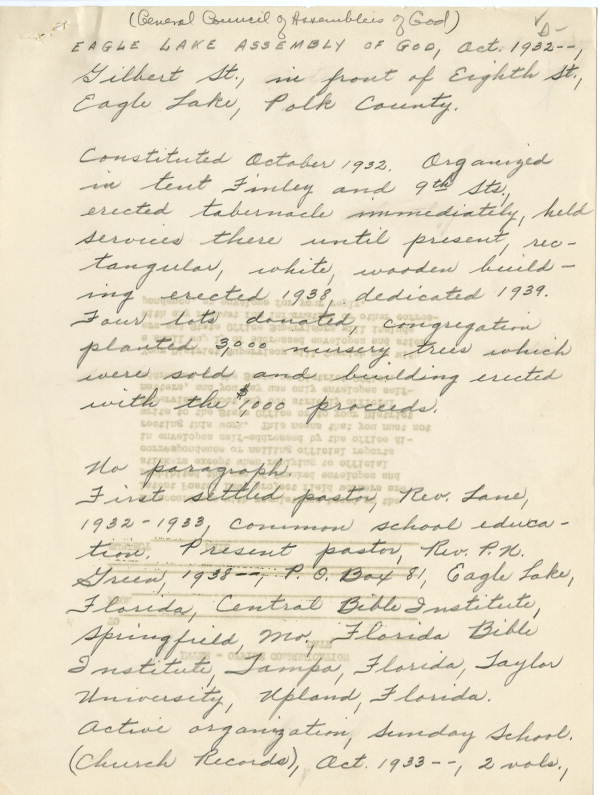 (General Council of Assemblies of God)
D-
EAGLE LAKE ASSEMBLY OF GOD, Oct. 1932--,
Gilbert St., in front of Eighth St.,
Eagle Lake, Polk County.
Constituted October 1932. Organized
in tent Finley and 9th Sts.,
erected tabernacle immediately, held
services there until present, rec-
tangular, white, wooden build-
ing erected 1938, dedicated 1939.
Four lots donated, congregation
planted 3,000 nursery trees which
were sold and building erected
with the $1,000 proceeds.
No paragraph.
First settled pastor, Rev. Lane,
1932-1933, common school educa-
tion. Present pastor, Rev. P.N.
Green, 1938--, P.O. Box 81, Eagle Lake,
Florida, Central Bible Institute,
Springfield, Mo., Florida Bible
Institute, Tampa, Florida, Taylor
University, Upland, Florida.
Active organization, Sunday School.
(Church Records), Oct. 1933--, 2 vols.,